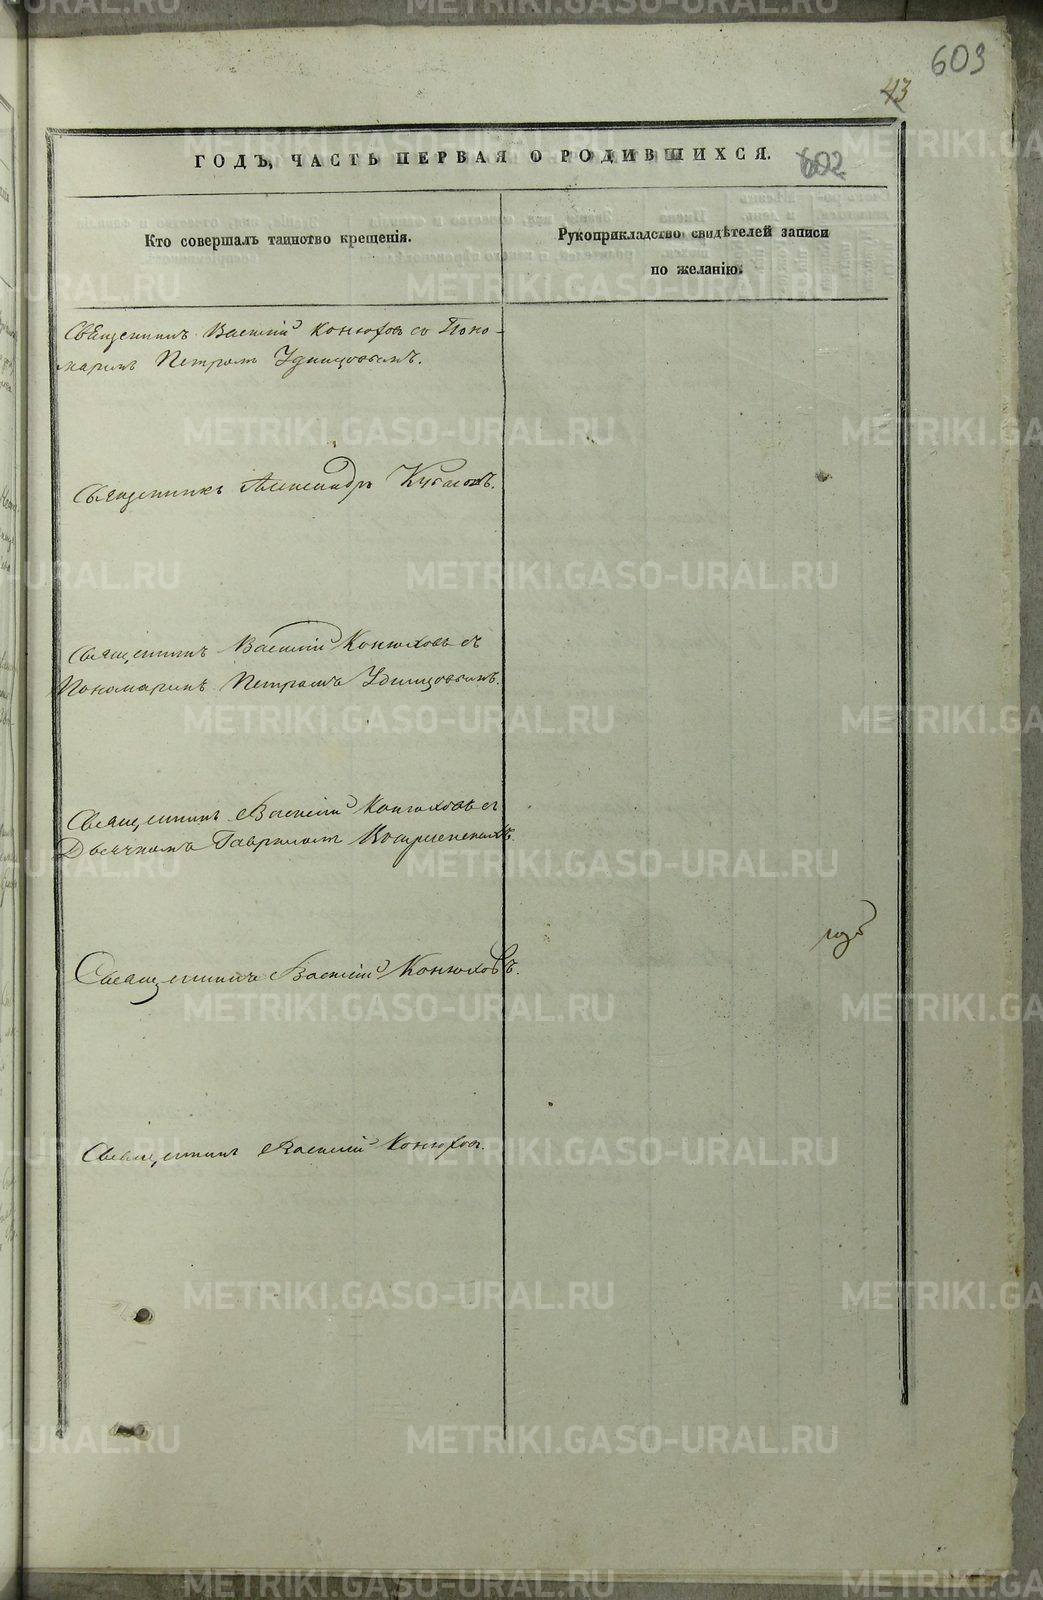 603
43
ГОДЪ, ЧАСТЬ ПЕРВАЯ О РОДИВШИХСЯ.
602
Кто совершалъ таинство крещенія.
Рукоприкладство свидѣтелей записи
по желанію.
Священникъ Василій Конюховъ со Поно-
маремъ Петромъ Удинцовымъ.
Священникъ Александръ
Священникъ Василій Конюховъ съ
Пономаремъ Петромъ Удинцовымъ.
Священникъ Василій Конюховъ съ
Дьячкомъ Гавриломъ Воскресенскимъ.
Священникъ Василій Конюховъ.
Священникъ Василій Конюховъ.
METRIKI.GASO-URAL.RU